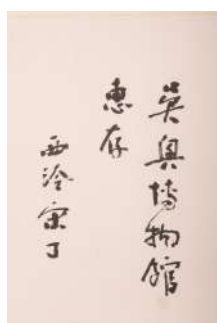 吴奥博物馆
惠存
西泠宋丁